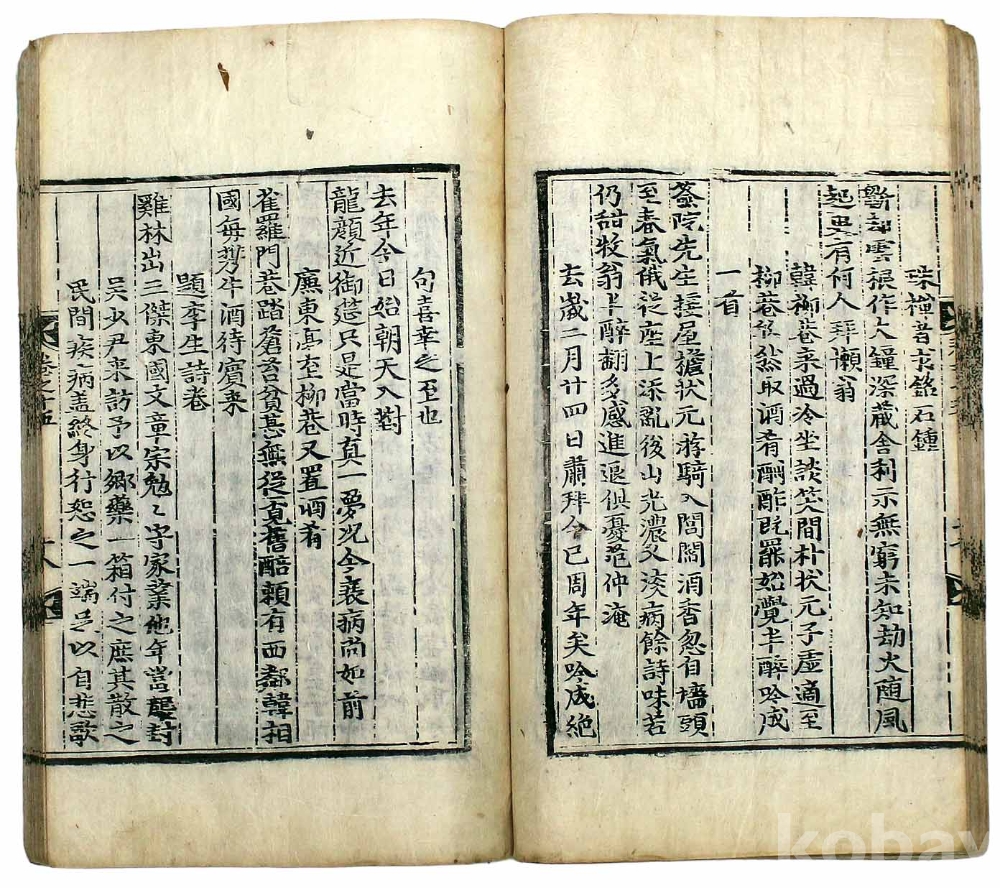 珠禪者銘石鍾
斲却雲根作大鐘深藏舍利示無窮未知劫火随風
起更有何人拜懶翁
韓柳巷来過冷坐談笑間朴状元子虛適至
柳巷依然取酒肴酬酢既罷始覺半醉吟成
一首
簽院先生接屋擔状元游騎入閭閻酒香忽自墻頭
至春氣俄從座上添亂後山光濃又淡病餘詩味苦
仍甜牧翁半醉翻多感進退俱憂范仲淹
去歲二月廿四日肅拜今已周年矣吟成絶
句喜幸之至也
去年今日始朝天入對
龍顔近御筵只是當時真一夢况今衰病尚如前
廉東亭至柳巷又置酒肴
雀羅門巷踏蒼苔貧甚無從覓舊醅頼有西鄰韓相
國每携牛酒待賓来
題李生詩卷
雞林出三傑東國文章宗勉〻守家業他年當襲封
吳少尹来訪予以鄉藥一箱付之庶其散之
民間疾病盖終身行恕之一端足以自悲歌
卷之十五
十八
kobay